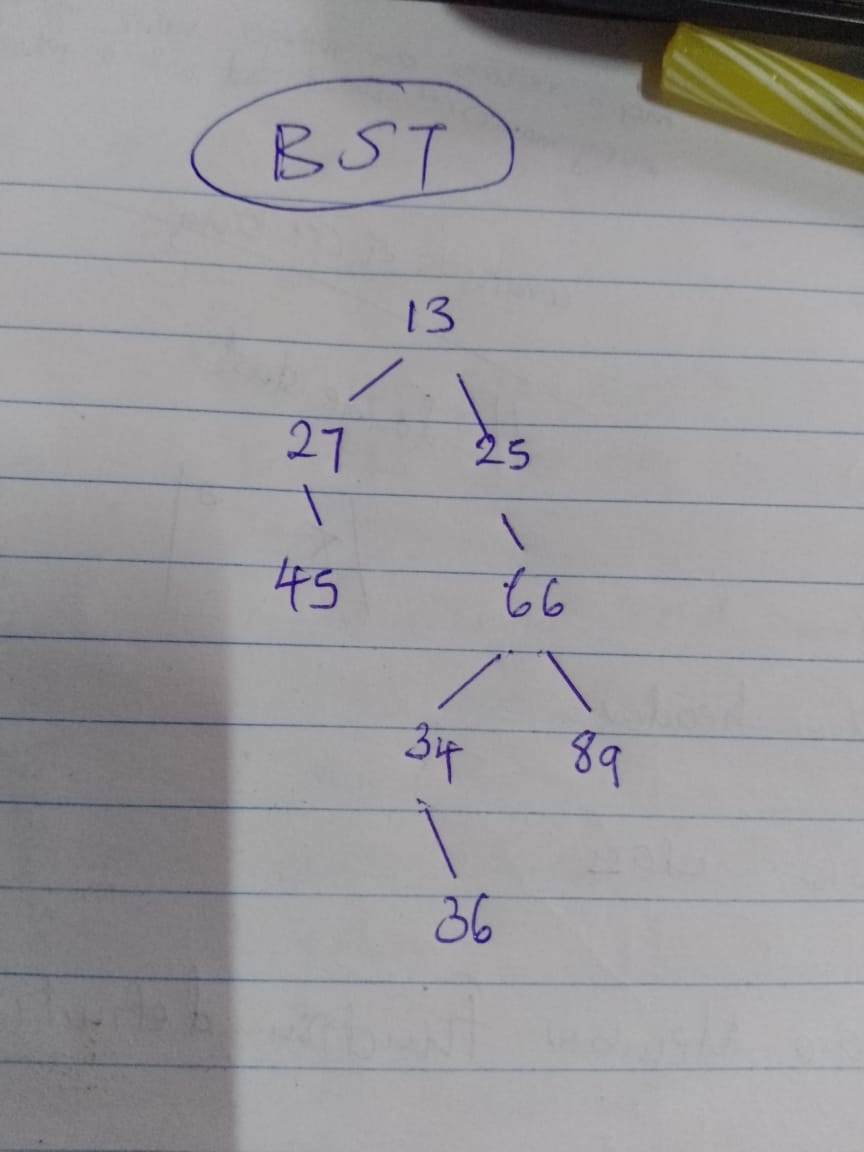 BST
13
27 25
45 66
34 89
36